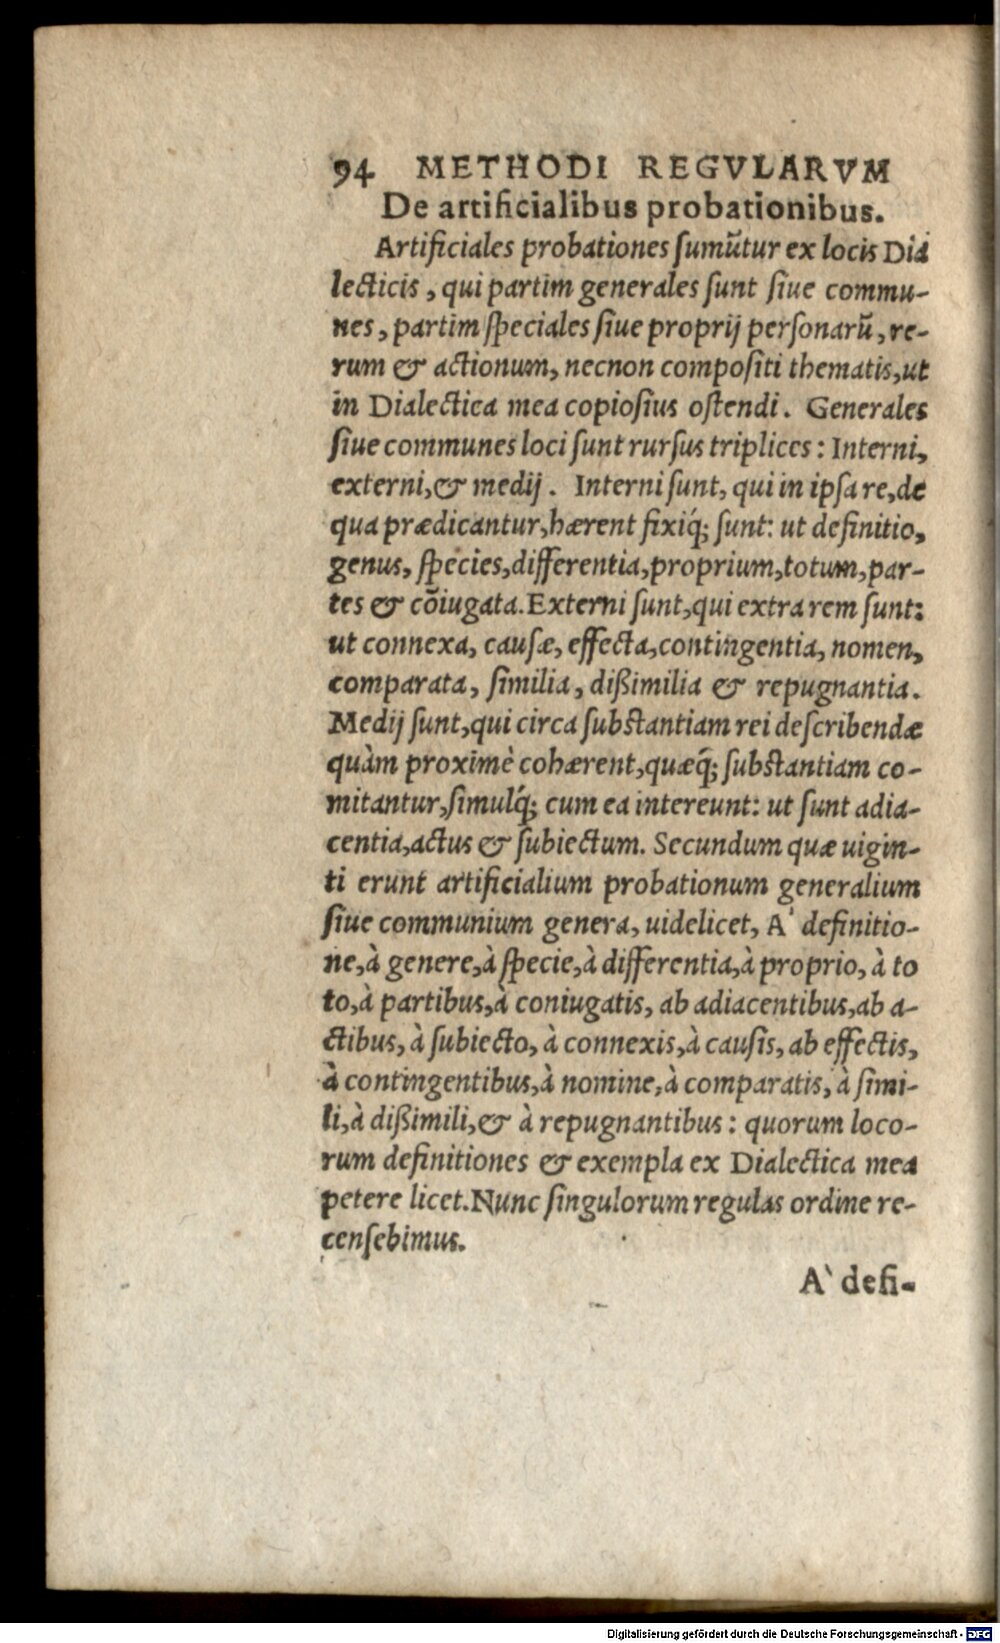 94 METHODI REGVLARVM
De artificialibus probationibus.
Artificiales probationes ſumũtur ex locis Dia
lecticis, qui partim generales ſunt ſiue commu-
nes, partim ſpeciales ſiue proprij perſonarũ, re-
rum & actionum, necnon compoſiti thematis, ut
in Dialectica mea copioſius oſtendi. Generales
ſiue communes loci ſunt rurſus triplices: Interni,
externi, & medij. Interni ſunt, qui in ipſa re, de
qua prædicantur, hærent fixiq́; ſunt: ut definitio,
genus, ſpecies, differentia, proprium, totum, par-
tes & cõiugata. Externi ſunt, qui extra rem ſunt:
ut connexa, cauſæ, effecta, contingentia, nomen,
comparata, ſimilia, dißimilia & repugnantia.
Medij ſunt, qui circa ſubſtantiam rei deſcribendæ
quàm proximè cohærent, quæq́; ſubſtantiam co-
mitantur, ſimulq́; cum ea intereunt: ut ſunt adia-
centia, actus & ſubiectum. Secundum quæ uigin-
ti erunt artificialium probationum generalium
ſiue communium genera, uidelicet, A' definitio-
ne, à genere, à ſpecie, à differentia, à proprio, à to
to, à partibus, à coniugatis, ab adiacentibus, ab a-
ctibus, à ſubiecto, à connexis, à cauſis, ab effectis,
à contingentibus, à nomine, à comparatis, à ſimi-
li, à dißimili, & à repugnantibus: quorum loco-
rum definitiones & exempla ex Dialectica mea
petere licet. Nunc ſingulorum regulas ordine re-
cenſebimus.
A` defi-
Digitalisierung gefördert durch die Deutsche Forschungsgemeinschaft - DFG